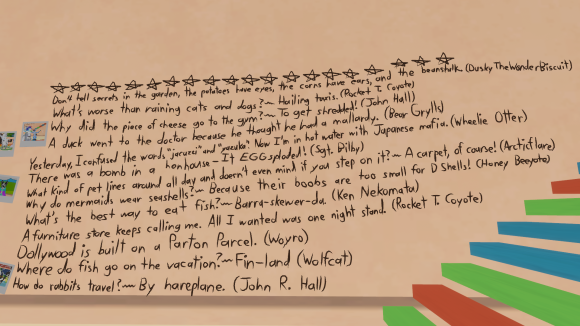 Don't tell secrets in the garden, the potatoes have eyes, the corns have ears, and the beanstalk. (DuskyTheWonderBiscuit)
What's worse than raining cats and dogs?~ Hailing taxis. (Rocket T. Coyote)
Why did the piece of cheese go to the gym?~ To get shredded! (John Hall)
A duck went to the doctor because he thought he had a mallardy. (Bear Grylls)
Yesterday, I confused the words "jacuzzi" and "yacuzla". Now I'm in hot water with Japanese mafia. (Wheelie Otter)
There was a bomb in a henhouse~ It EGGsploded! (Sgt. Dilby)
What kind of pet lines around all day and doesn't even mind if you step on it?~ A carpet, of course! (Arcticflare)
Why do mermaids wear seashells?~ Because their boobs are too small for D Shells! (Honey Beeyote)
What's the best way to eat fish?~ Barra-skewer-da. (Ken Nekomata)
A furniture store keeps calling me. All I wanted was one night stand. (Rocket T. Coyote)
Dollywood is built on a Parton Parcel. (Woyro)
Where do fish go on the vacation?~ Fin-land (Wolfcat)
How do rabbits travel?~ By hareplane. (John R. Hall)